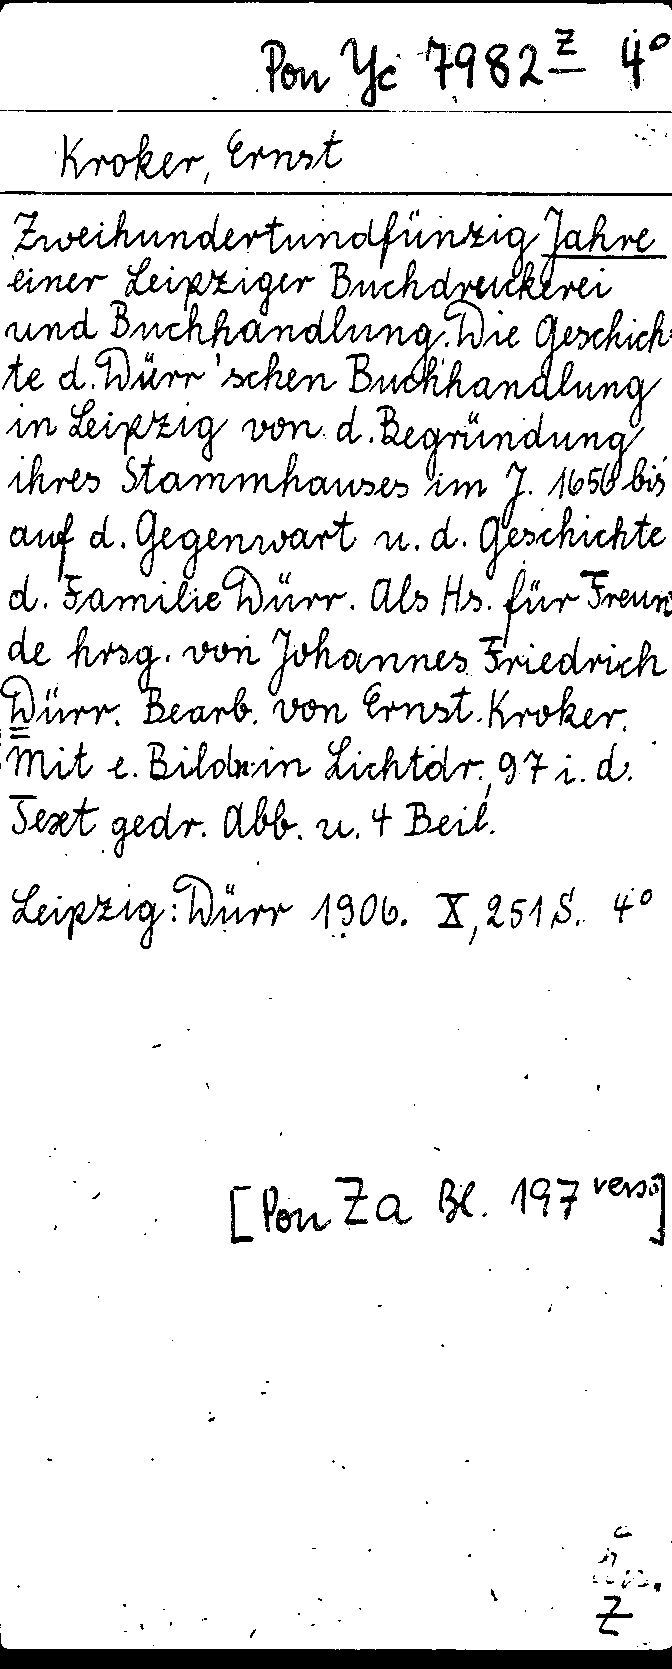 Pon Yc 7982 z 4°
Kroker, Ernst
Zweihundertundfünzig Jahre
einer Leipziger Buchdruckerei
und Buchhandlung. Die Geschich-
te d. Dürr'schen Buchhandlung
in Leipzig von d. Begründung
ihres Stammhauses im J. 1656 bis
auf d. Gegenwart u. d. Geschichte
d. Familie Dürr. Als Hs. für Freun
de hrsg. von Johannes Friedrich
Dürr. Bearb. von Ernst Kroker.
Mit e. Bildn. in Lichtdr., 97 i. d.
Text gedr. Abb. u. 4 Beil.
Leipzig: Dürr 1906. X, 251 S. 4°
[Pon Za Bl. 197 verso]
Z